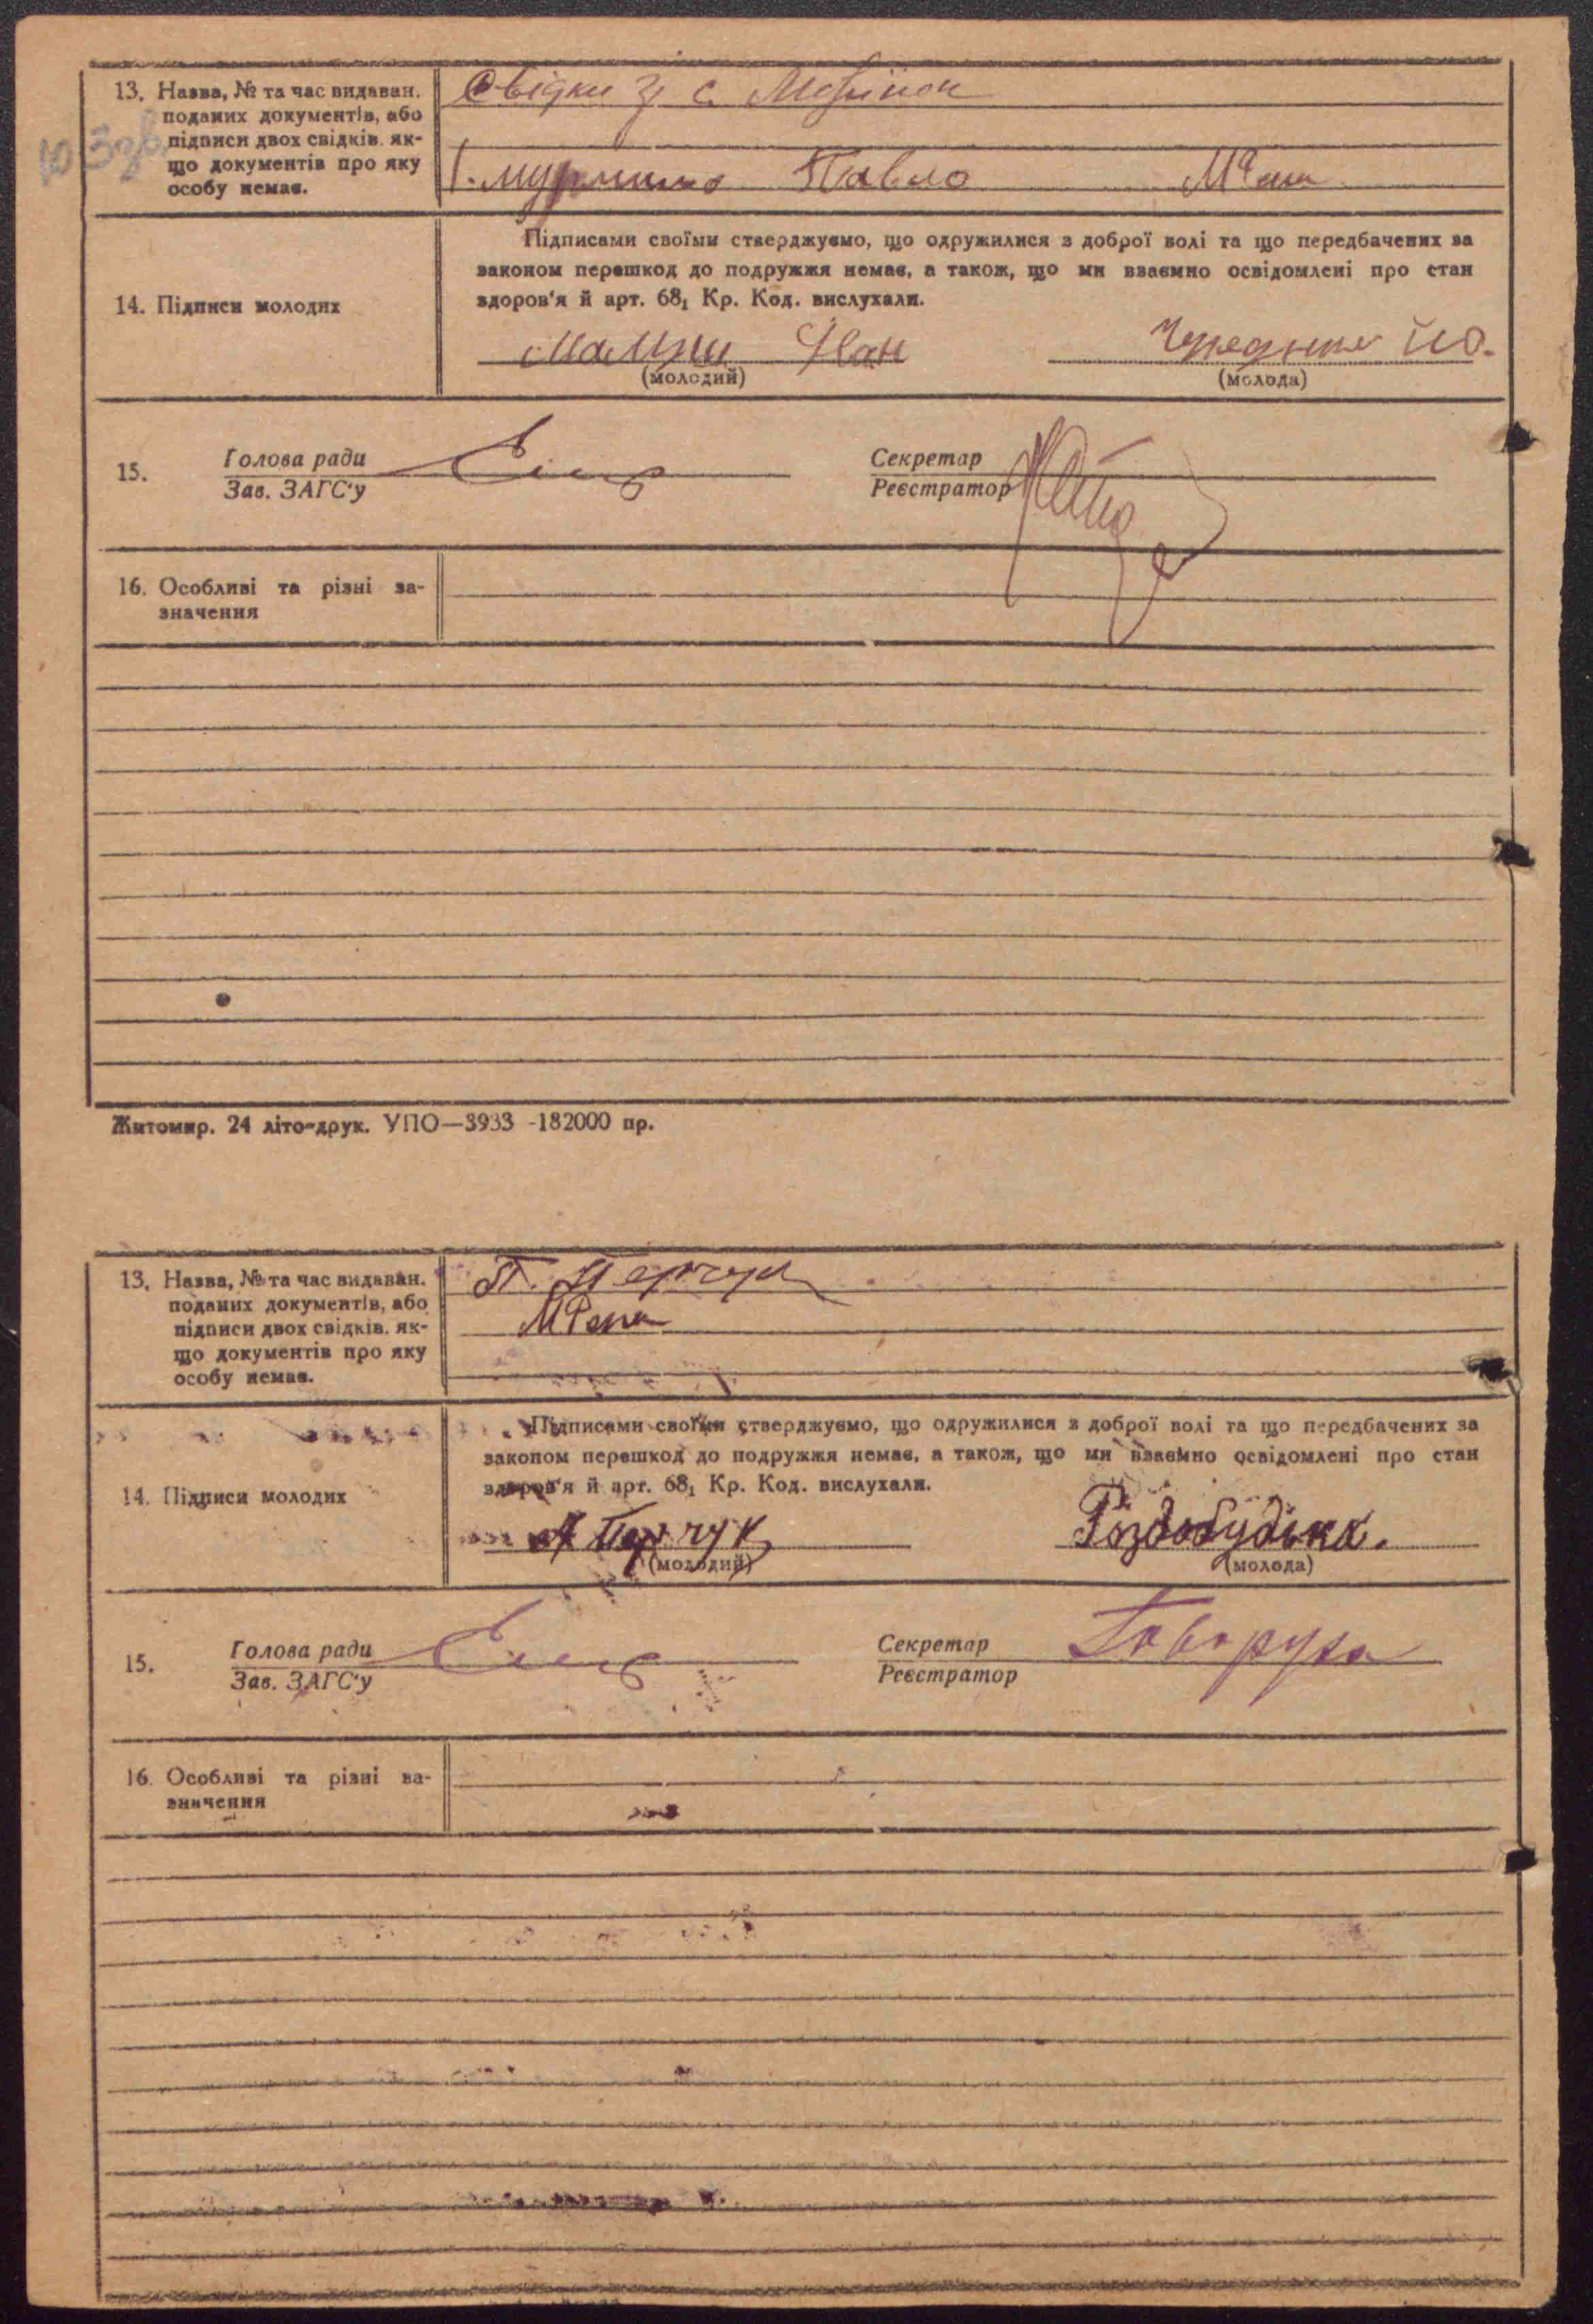 13. Назва, № та час видаван.
поданих документів, або
підписи двох свідків. як-
що документів про яку
особу немає.
Свідки з с.
Павло
14. Підписи молодих
Підписами своїми стверджуємо, що одружилися з доброї волі та що передбачених за
законом перешкод до подружжя немає, а також, що ми взаємно освідомлені про стан
здоров'я й арт. 68₁ Кр. Код. вислухали.
Іван
(молодий)
(молода)
15.
Голова ради
Зав. ЗАГС'у
Секретар
Реєстратор
16. Особливі та різні за-
значення
Житомир. 24 літо-друк. УПО—3933 -182000 пр.
13. Назва, № та час видаван.
поданих документів, або
підписи двох свідків. як-
що документів про яку
особу немає.
14. Підписи молодих
Підписами своїми стверджуємо, що одружилися з доброї волі та що передбачених за
законом перешкод до подружжя немає, а також, що ми взаємно освідомлені про стан
здоров'я й арт. 68₁ Кр. Код. вислухали.
Роздобудько.
(молодий)
(молода)
15.
Голова ради
Зав. ЗАГС'у
Секретар
Реєстратор
Говоруха
16. Особливі та різні за-
значення